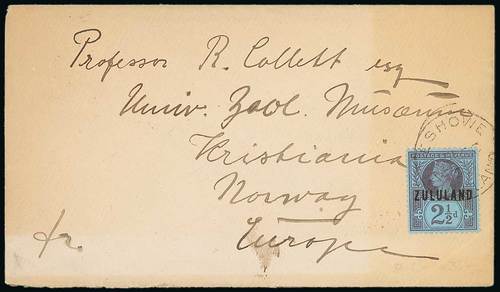 Professor R. Collett esq
Univ. Zool. Musæum
Kristiania
Norway
Europe
fr.
ESHOWE
POSTAGE & REVENUE
ZULULAND
2½d